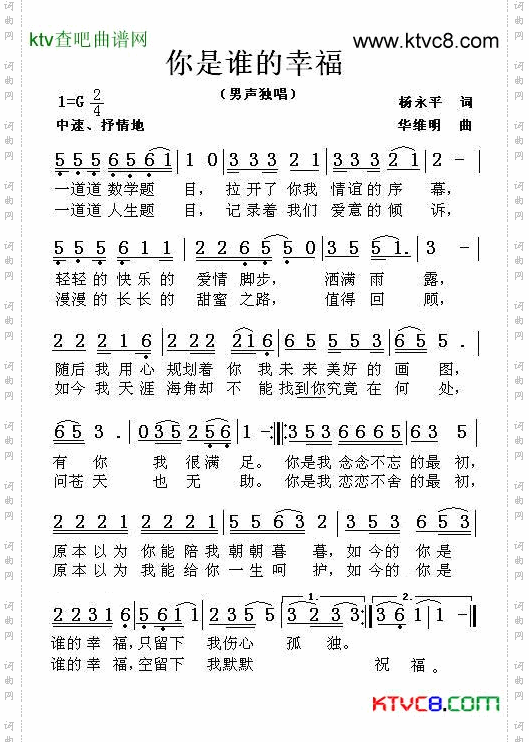 ktv查吧曲谱网
www.ktvc8.com
你是谁的幸福
(男声独唱)
1=G 2/4
杨永平 词
中速、抒情地
华维明 曲
5 5 5 5 6 5 6 1 | 1 0 | 3 3 3 3 3 | 3 3 2 0 1 | 2 - |
一道道 数学题 目, 拉开了你我 情谊的序 幕,
一道道 人生题 目, 记录着我们 爱意的倾 诉,
5 5 5 5 6 1 1 | 2 2 2 6 5 | 5 0 | 3 5 5 1. | 3 - |
轻轻的 快乐的 爱情 脚步, 洒满 雨 露,
漫漫的 长长的 甜蜜 之路, 值得 回 顾,
2 2 2 2 1 6 | 2 2 2 2 1 | 2 2 1 6 | 5 5 5 3 5 6 5 |
随后 我 用心 规划着 你 我 未来 美好的 画 图,
如今 我 天涯 海角却 不 能 找到你究竟 在 何 处,
6 5 3 . | 0 3 5 2 2 5 6 | 1 - :||: 3 5 3 5 6 6 6 5 | 6 6 3 5 |
有 你 我 很 满 足。 你是我 念念不忘 的最 初,
问苍 天 也 无 助。 你是我 恋恋不舍 的最 初,
2 2 2 1 2 2 2 1 | 2 2 5 5 | 5 3 6 3 | 3 5 3 6 5 3 |
原本以为 你能陪我 朝朝暮 暮, 如今的 你是
原本以为 我能给你 一生呵 护, 如今的 你是
2 2 3 1 6 | 5 6 1 1 | 2 3 5 5 | 3 2 3 3 :|| 3 6 1 | 1 - ||
1.
2.
谁的 幸 福, 只留下 我伤心 孤 独。
谁的 幸 福, 空留下 我默默 祝 福。
KTVC8.com
词曲网